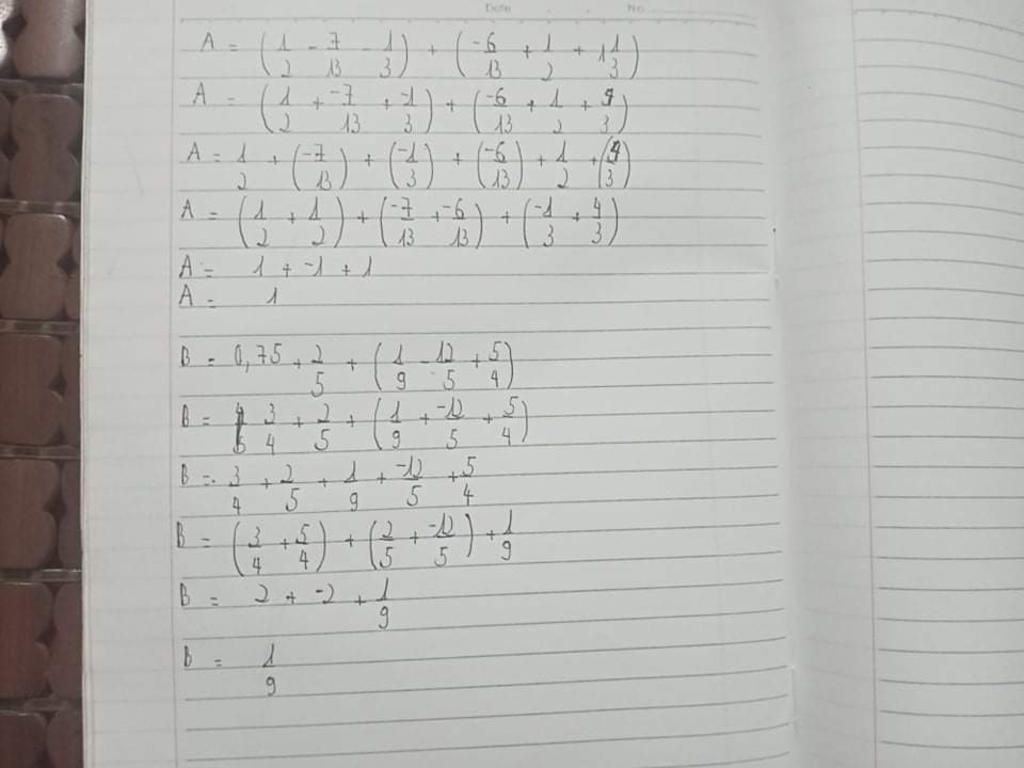 Date No
A = (1/2 - 7/13 - 1/3) + (-6/13 + 1/2 + 1 1/3)
A = (1/2 + -7/13 + -1/3) + (-6/13 + 1/2 + 4/3)
A = 1/2 + (-7/13) + (-1/3) + (-6/13) + 1/2 + (4/3)
A = (1/2 + 1/2) + (-7/13 + -6/13) + (-1/3 + 4/3)
A = 1 + -1 + 1
A = 1
B = 0,75 + 2/5 + (1/9 - 12/5 + 5/4)
B = 3/4 + 2/5 + (1/9 + -12/5 + 5/4)
B = 3/4 + 2/5 + 1/9 + -12/5 + 5/4
B = (3/4 + 5/4) + (2/5 + -12/5) + 1/9
B = 2 + -2 + 1/9
B = 1/9